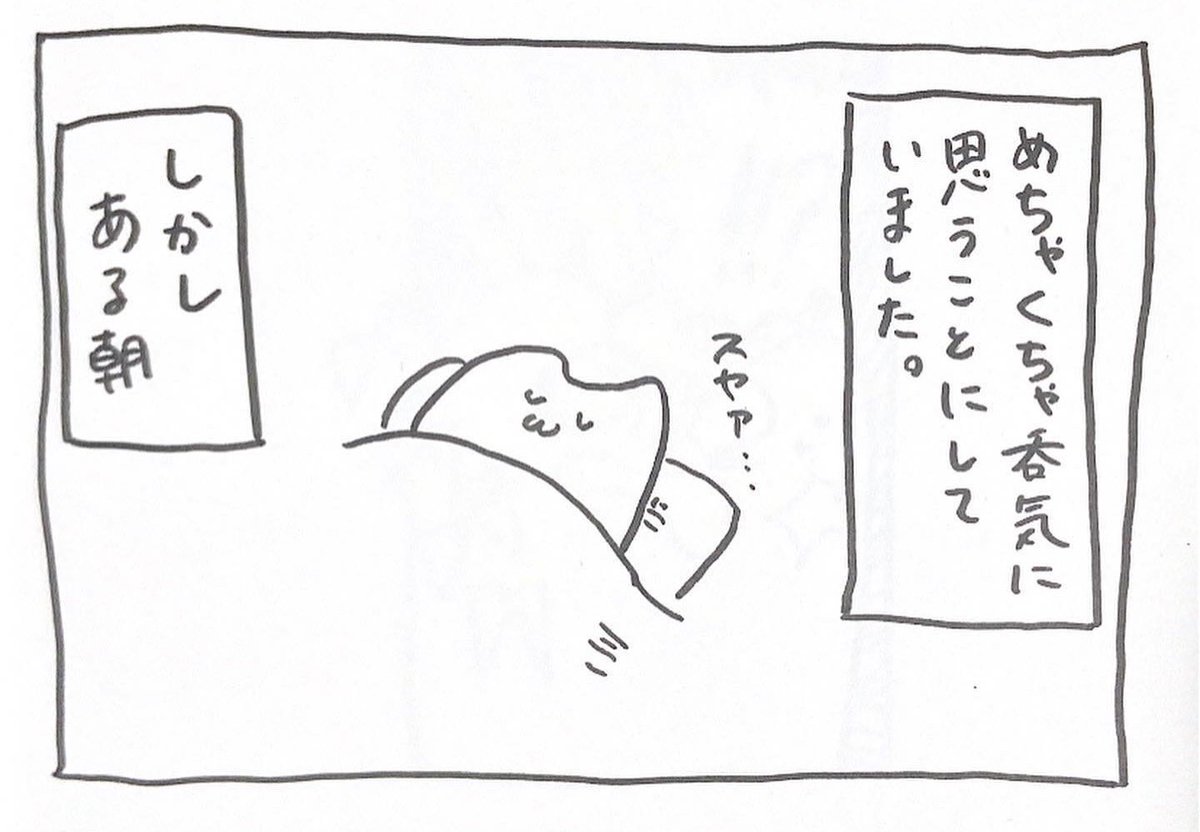 めちゃくちゃ呑気に
思うことにして
いました。
スヤァ…
しかし
ある朝